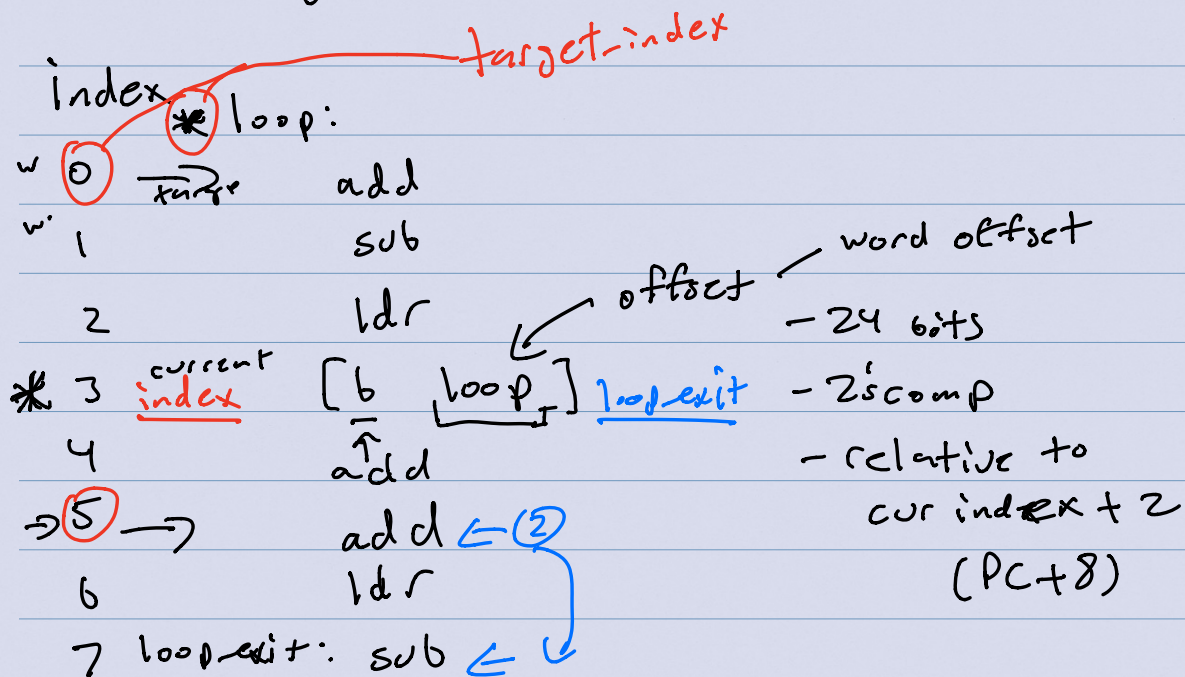 target_index
index
* loop:
w 0 target add
w 1 sub
word offset
offset
2 ldr - 24 bits
* 3 current index [b loop] loop_exit - 2's comp
4 add - relative to
5 add 2 cur index + 2
6 ldr (PC+8)
7 loop_exit: sub